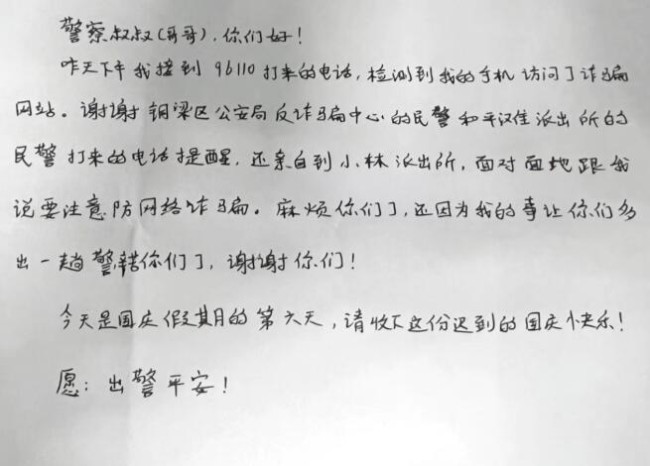 警察叔叔(哥哥),你们好!
昨天下午我接到96110打来的电话,检测到我的手机访问了诈骗
网站。谢谢铜梁区公安局反诈骗中心的民警和平滩佳派出所的
民警打来的电话提醒,还亲自到小林派出所,面对面地跟我
说要注意防网络诈骗。麻烦你们了,还因为我的事让你们多
出一趟警,辛苦你们了,谢谢你们!
今天是国庆假期的第六天,请收下这份迟到的国庆快乐!
愿:出警平安!